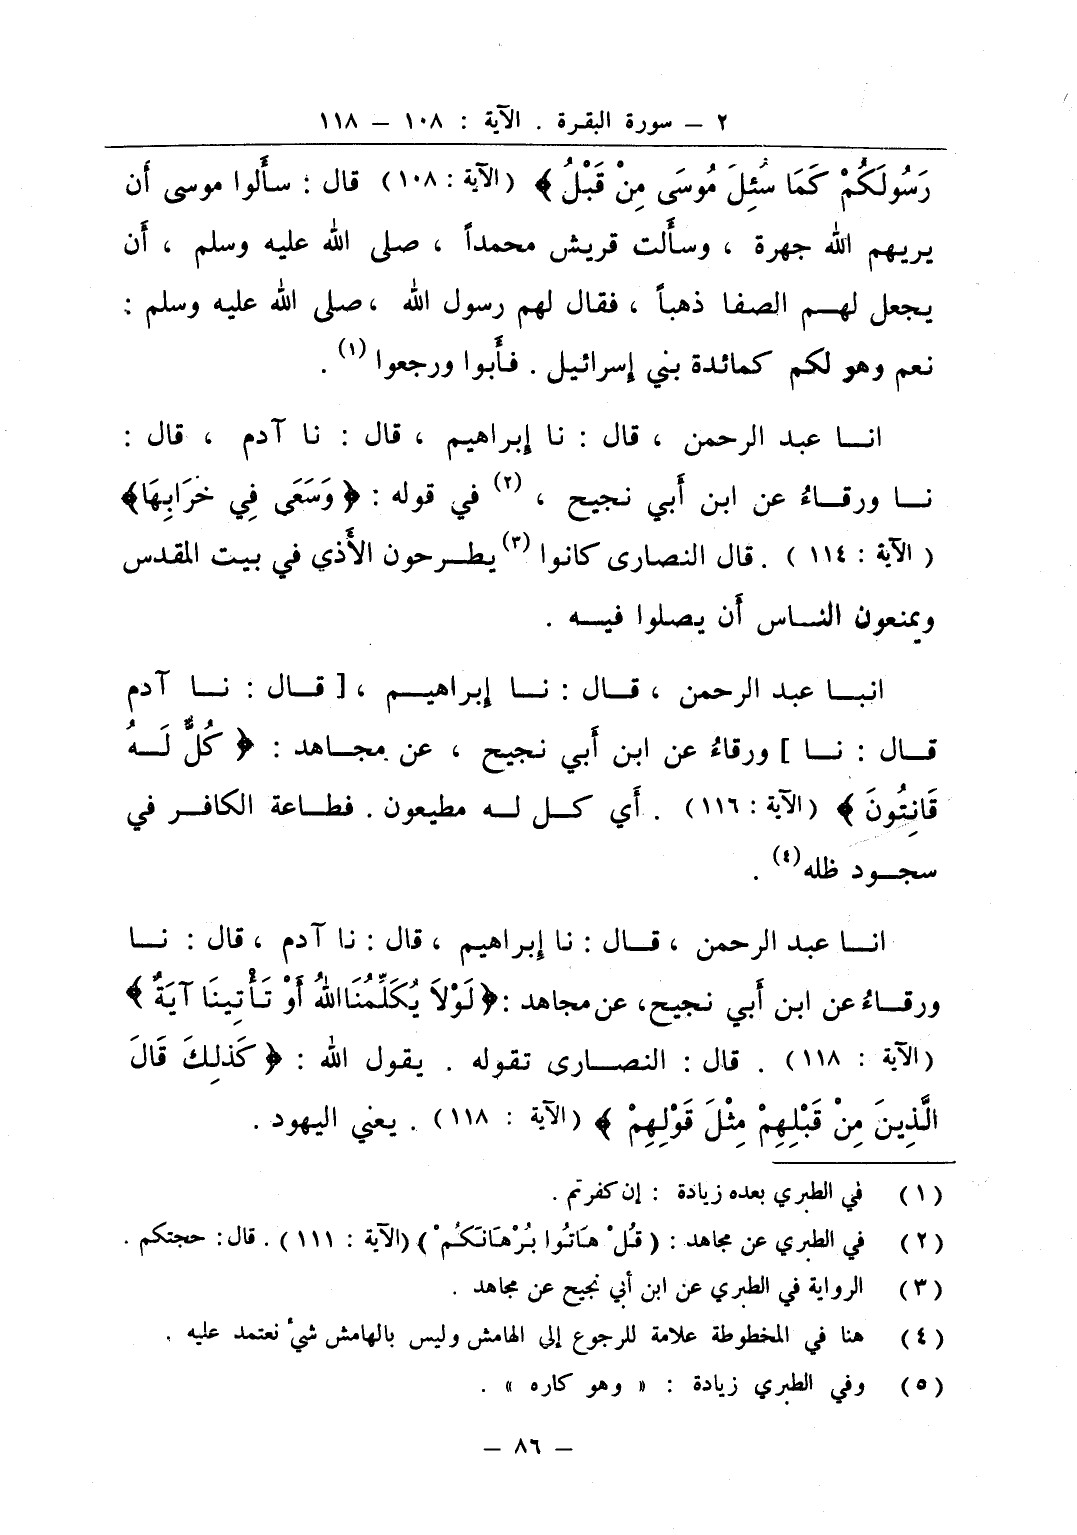 ٢ – سورة البقرة . الآية : ١٠٨ – ١١٨
رَسُولَكُمْ كَمَا سُئِلَ مُوسَى مِنْ قَبْلُ ﴾ (الآية : ١٠٨) قال : سأَلوا موسى أَن
يريهم الله جهرة ، وسأَلت قريش محمداً ، صلى الله عليه وسلم ، أَن
يجعل لهم الصفا ذهباً ، فقال لهم رسول الله ، صلى الله عليه وسلم :
نعم وهو لكم كمائدة بني إسرائيل . فأَبوا ورجعوا (١) .
انا عبد الرحمن ، قال : نا إبراهيم ، قال : نا آدم ، قال :
نا ورقاءُ عن ابن أَبي نجيح ، (٢) في قوله : ﴿ وَسَعَى فِي خَرَابِهَا﴾
( الآية : ١١٤ ) . قال النصارى كانوا (٣) يطرحون الأَذي في بيت المقدس
ويمنعون الناس أَن يصلوا فيه .
انبا عبد الرحمن ، قال : نا إبراهيم ، [ قال : نا آدم
قال : نا ] ورقاءُ عن ابن أَبي نجيح ، عن مجاهد : ﴿ كُلٌّ لَهُ
قَانِتُونَ ﴾ (الآية : ١١٦) . أَي كل له مطيعون . فطاعة الكافر في
سجود ظله (٤) .
انا عبد الرحمن ، قال : نا إبراهيم ، قال : نا آدم ، قال : نا
ورقاءُ عن ابن أَبي نجيح ، عن مجاهد : ﴿ لَوْلاَ يُكَلِّمُنَا اللهُ أَوْ تَأْتِينَا آيَةٌ ﴾
(الآية : ١١٨) . قال : النصارى تقوله . يقول الله : ﴿ كَذلِكَ قَالَ
الَّذِينَ مِنْ قَبْلِهِمْ مِثْلَ قَوْلِهِمْ ﴾ (الآية : ١١٨) . يعني اليهود .
(١) في الطبري بعده زيادة : إن كفرتم .
(٢) في الطبري عن مجاهد : ( قُلْ هَاتُوا بُرْهَانَكُمْ ) (الآية : ١١١) . قال : حجتكم .
(٣) الرواية في الطبري عن ابن أبي نجيح عن مجاهد .
(٤) هنا في المخطوطة علامة للرجوع إلى الهامش وليس بالهامش شيء نعتمد عليه .
(٥) وفي الطبري زيادة : « وهو كاره » .
– ٨٦ –